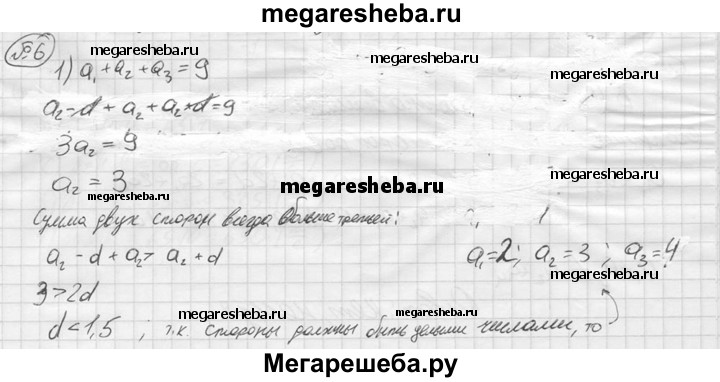 megaresheba.ru
№6
1) a₁ + a₂ + a₃ = 9
megaresheba.ru
megaresheba.ru
a₂ - d + a₂ + a₂ + d = 9
megaresheba.ru
megaresheba.ru
3a₂ = 9
a₂ = 3
megaresheba.ru
megaresheba.ru
megaresheba.ru
Сумма двух сторон всегда больше третьей:
a₂ - d + a₂ > a₂ + d
a₁=2; a₂=3; a₃=4
megaresheba.ru
megaresheba.ru
3 > 2d
megaresheba.ru
megaresheba.ru
d < 1,5 ; т.к. стороны должны быть целыми числами, то
Мегарешеба.ру